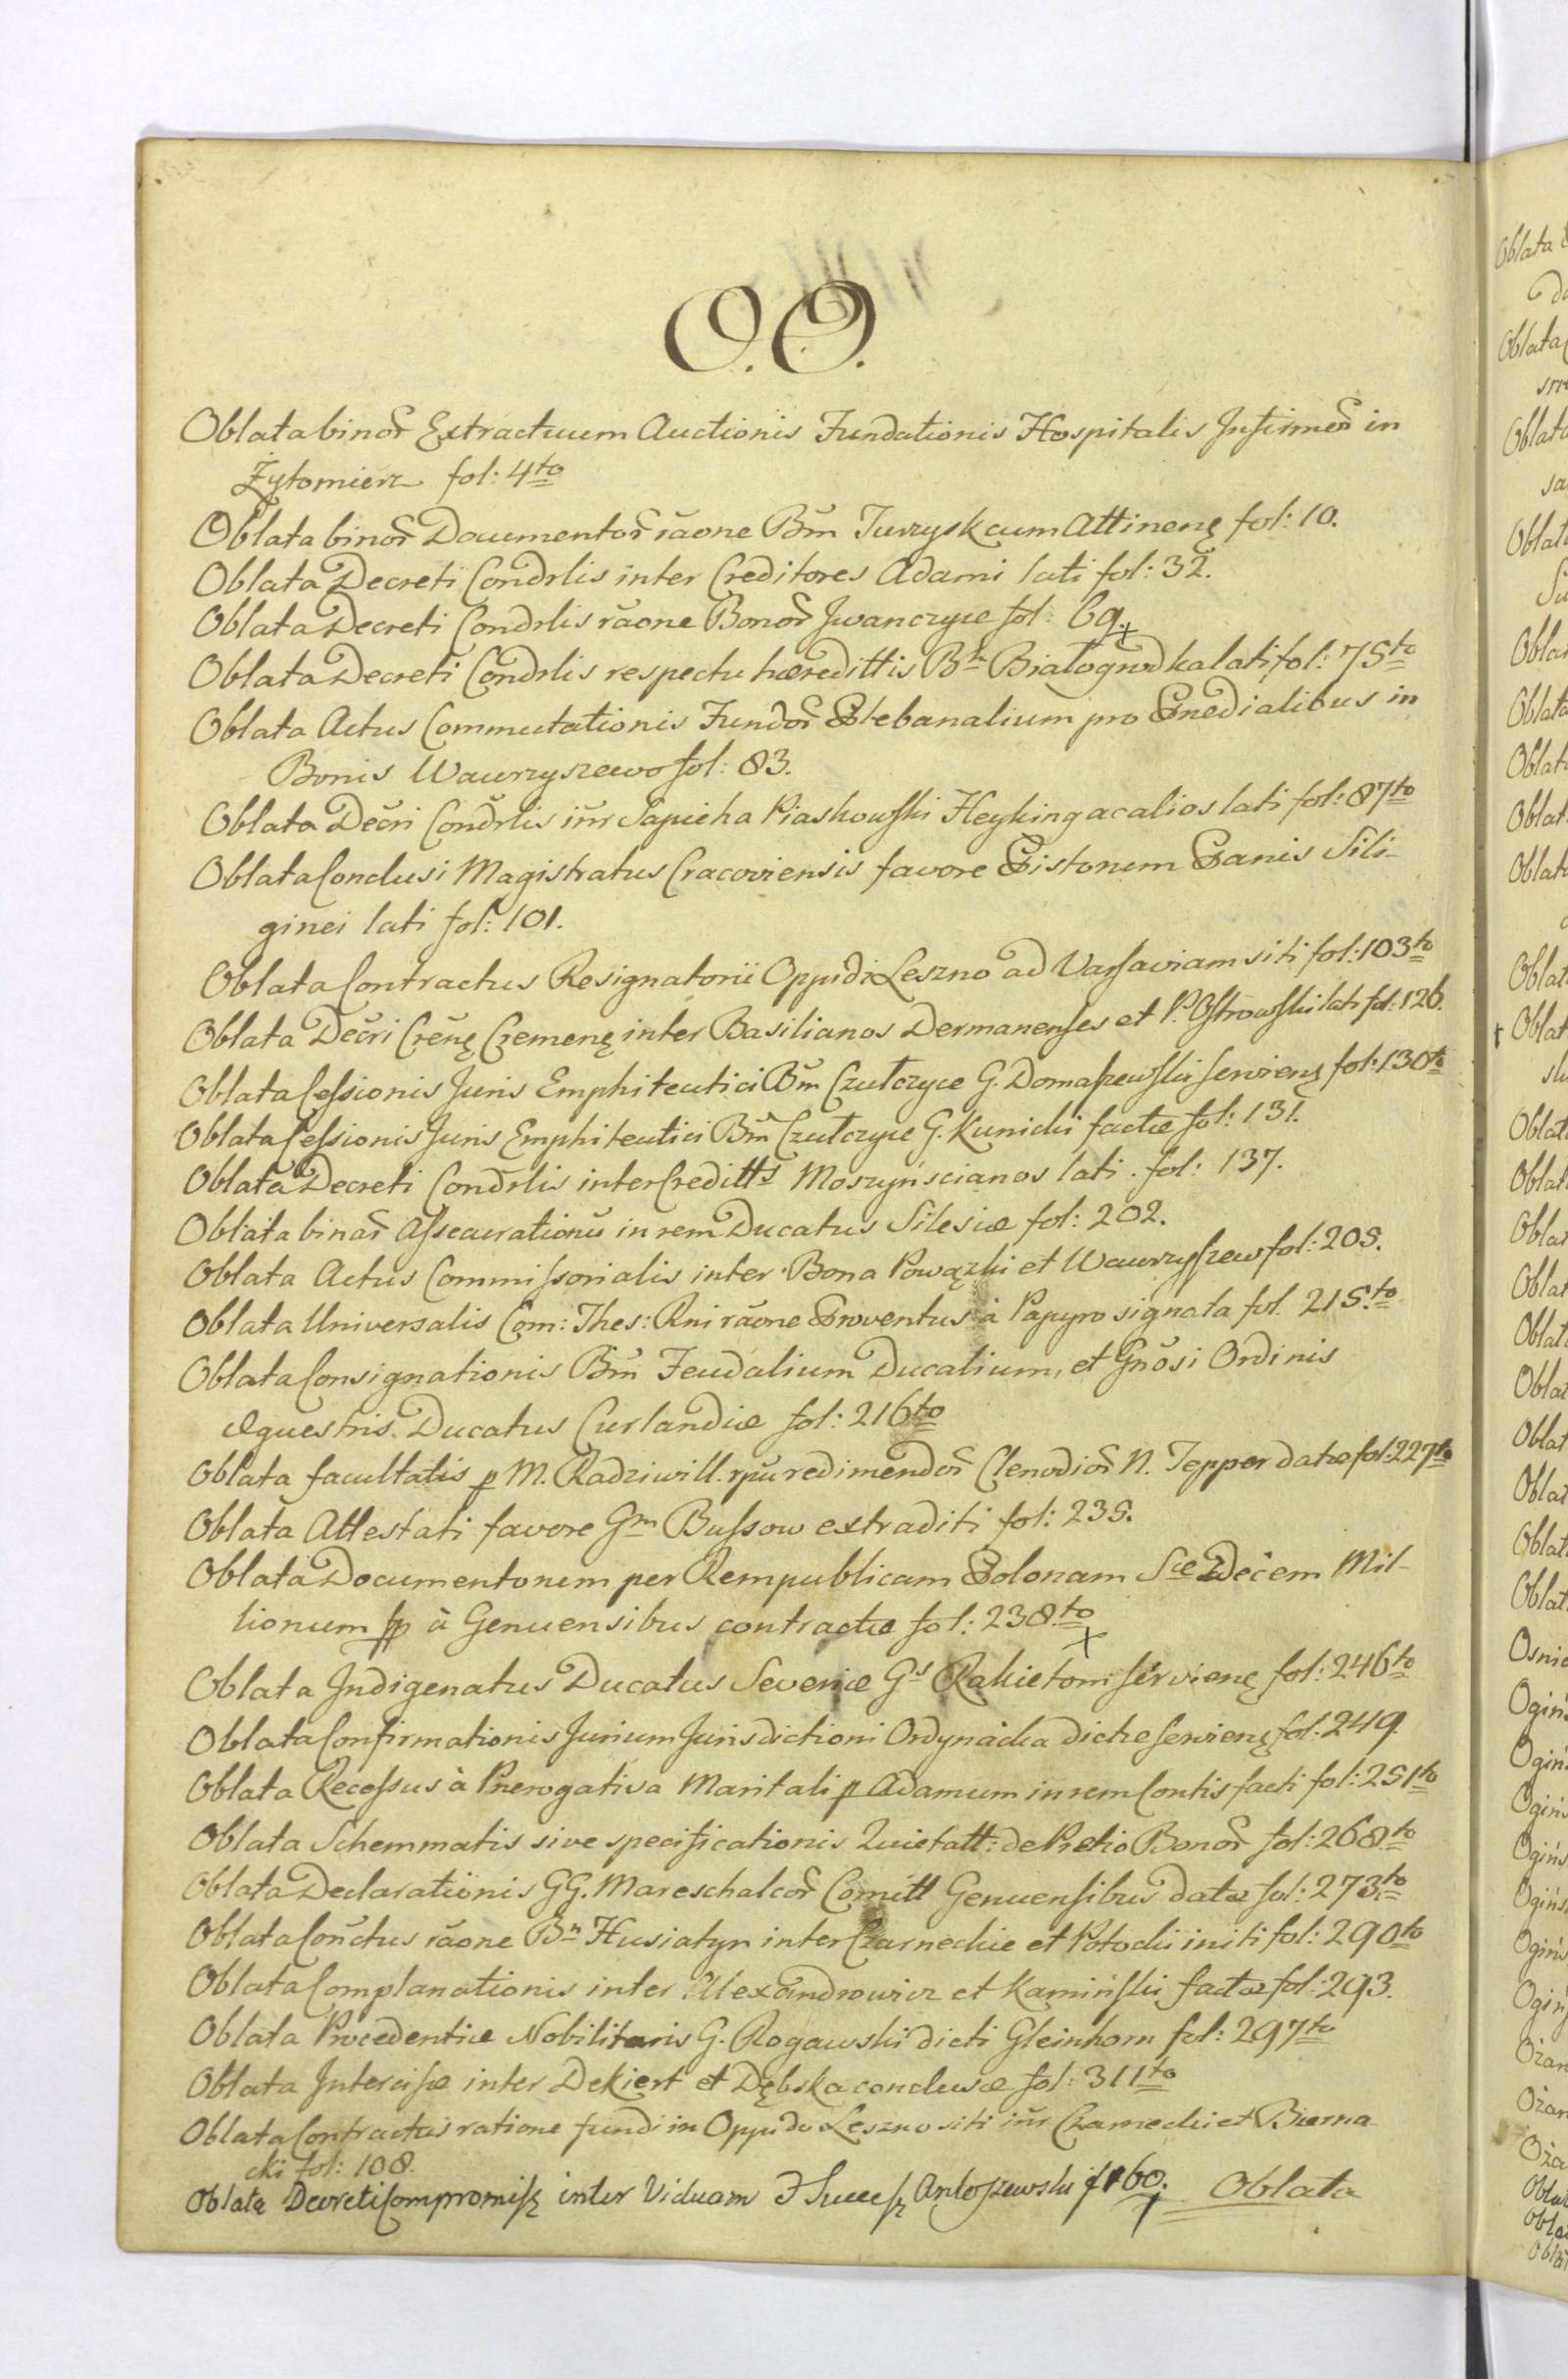 O.O.
Oblata binor̃ Extractuum Auctionis Fundationis Hospitalis Infirmor̃ in
Żytomierz fol: 4to
Oblata binor̃ Documentor̃ rãone Bm̃ Turzysk cum Attinenę fol: 10.
Oblata Decreti Condrlis inter Creditores Adami lati fol: 32.
Oblata Decreti Condrlis rãone Bonor̃ Jwanczyce fol: 69.
Oblata Decreti Condrlis respectu hæredittis Bn Białogrodka lati fol: 75to
Oblata Actus Commutationis Fundor̃ Plebanalium pro Prædialibus in
Bonis Wawrzyszewo fol: 83.
Oblata Decri Condrlis inr Sapieha Piaskowski Heyking ac alios lati fol: 87to
Oblata Conclusi Magistratus Cracoviensis favore Pistorum Panis Sili-
ginei lati fol: 101.
Oblata Contractus Resignatorii Oppidi Leszno ad Varsaviam siti fol: 103to
Oblata Decri Crenę Czemenę inter Basilianos Dermanenses et P. Ostrowski lati fol: 126.
Oblata Cessionis Juris Emphiteutici Bm̃ Czułczyce G. Domaszewski servienę fol: 130to
Oblata Cessionis Juris Emphiteutici Bm̃ Czułczyce G. Kunicki factæ fol: 131.
Oblata Decreti Condrlis inter Creditts Moszyńscianos lati. fol: 137.
Oblata binar̃ Assecurationũ in rem Ducatus Silesiæ fol: 202.
Oblata Actus Commissorialis inter Bona Powązki et Wawrzyszew fol: 205.
Oblata Universalis Com: Thes: Rni rãone Proventus à Papyro signata fol. 215to
Oblata Consignationis Bm̃ Feudalium Ducalium, et Gnosi Ordinis
æquestris Ducatus Curlandiæ fol: 216to
Oblata facultatis p M. Radziwill. rpu redimendor̃ Clenodior̃ N. Tepper datæ fol: 227to
Oblata Attestati favore Gm Bussow extraditi fol: 235.
Oblata Documentorum per Rempublicam Polonam Sæ Decem Mil-
lionum fp à Genuensibus contractæ fol: 238to
Oblata Indigenatus Ducatus Severiæ Gs Rakietom servienę fol: 246to
Oblata Confirmationis Jurium Jurisdictioni Ordynacka dictæ servienę fol: 249
Oblata Recessus à Prærogativa Maritali p Adamum in rem Contis facti fol: 251to
Oblata Schemmatis sive specificationis Quietatt: de Pretio Bonor̃ fol: 268to
Oblata Declarationis GG. Mareschalcor̃ Comitt Genuensibus datæ fol: 273to
Oblata Conctus rãone Bn Husiatyn inter Czarneckie et Potocki initi fol: 290to
Oblata Complanationis inter Alexandrowicz et Kamiński factæ fol: 293.
Oblata Procedentiæ Nobilitaris G. Rogawski dicti Gleinhorn fol: 297to
Oblata Intercisæ inter Dekiert et Dębska conclusæ fol: 311to
Oblata Contractus ratione fundi in Oppido Leszno siti inr Czarnecki et Bierna
cki fol: 108.
Oblata Decreti Compromisę inter Viduam & Success Antoszewski f 160. Oblata